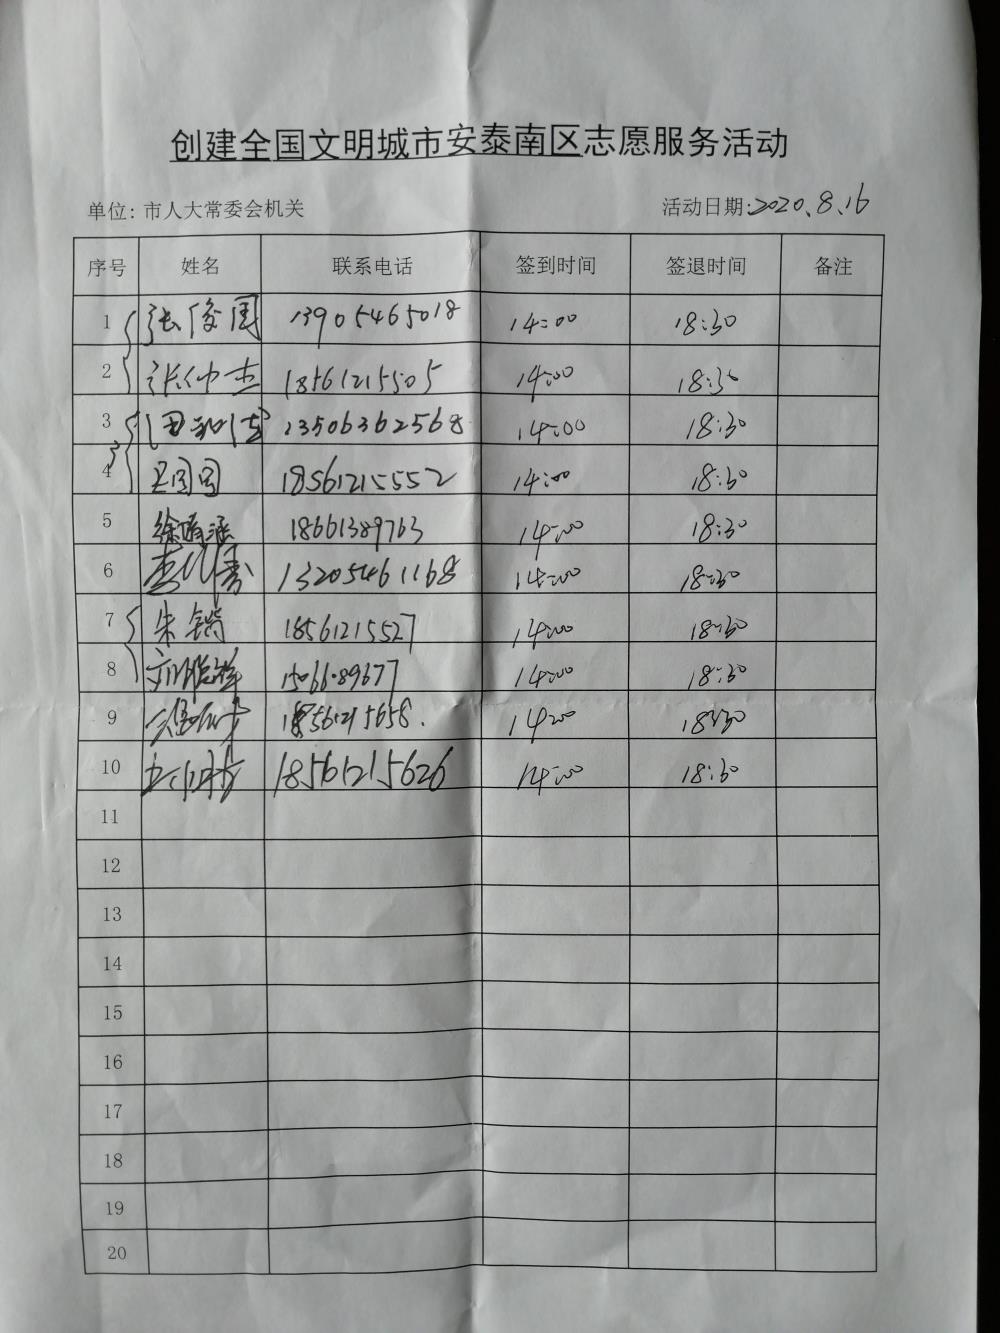 创建全国文明城市安泰南区志愿服务活动
单位：市人大常委会机关 活动日期:2020.8.16
序号 姓名 联系电话 签到时间 签退时间 备注
1 张俊周 13905465018 14:00 18:30
2 张仲杰 18561215505 14:00 18:30
3 13506362568 14:00 18:30
4 18561215552 14:00 18:30
5 18661389763 14:00 18:30
6 13205461168 14:00 18:30
7 朱 18561215527 14:00 18:30
8 14:00 18:30
9 18561215658. 14:00 18:30
10 18561215626 14:00 18:30
11
12
13
14
15
16
17
18
19
20